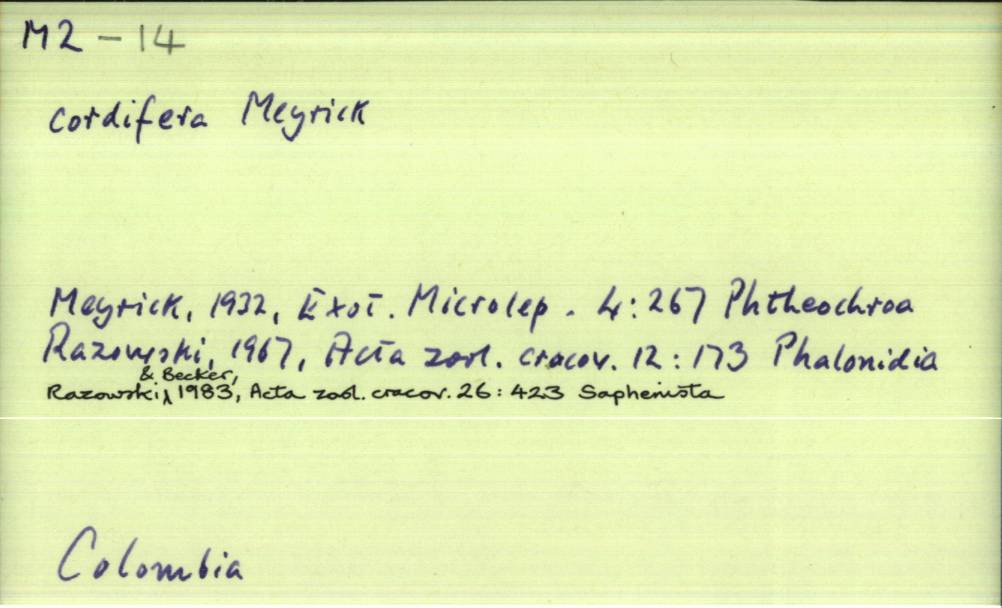 M2 - 14
cordifera Meyrick
Meyrick, 1932, Exot. Microlep. 4:267 Phtheochroa
Razowski, 1967, Acta zool. cracov. 12:173 Phalonidia
& Becker,
Razowski, 1983, Acta zool. cracov. 26:423 Saphenista
Colombia